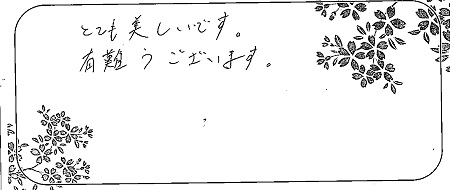 とても美しいです。
有難うございます。